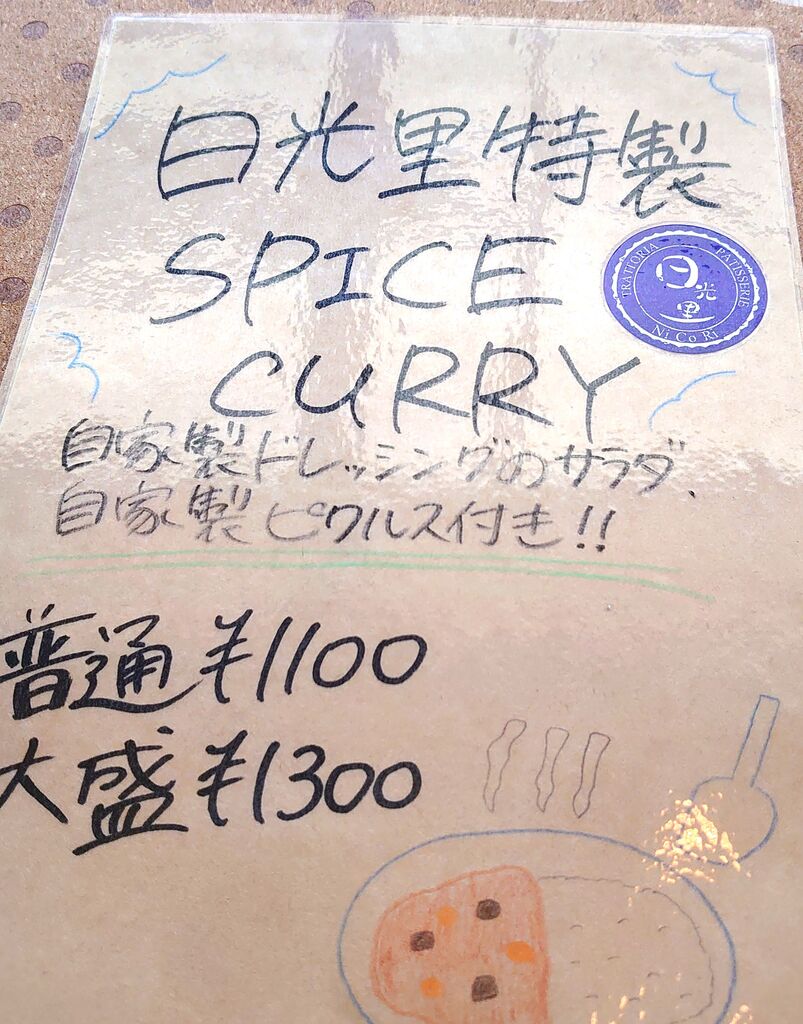 日光里特製
SPICE
CURRY
TRATTORIA PATISSERIE
日光里
Ni Co Ri
自家製ドレッシングのサラダ、
自家製ピクルス付き!!
普通 ¥1100
大盛 ¥1300